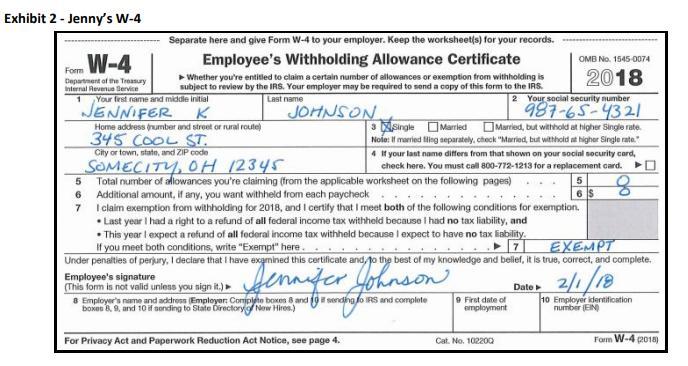 Exhibit 2 - Jenny's W-4
Separate here and give Form W-4 to your employer. Keep the worksheet(s) for your records.
Form W-4
Department of the Treasury
Internal Revenue Service
Employee's Withholding Allowance Certificate
▶ Whether you're entitled to claim a certain number of allowances or exemption from withholding is
subject to review by the IRS. Your employer may be required to send a copy of this form to the IRS.
OMB No. 1545-0074
2018
1 Your first name and middle initial
JENNIFER K
Last name
JOHNSON
2 Your social security number
987-65-4321
Home address (number and street or rural route)
345 COOL ST.
3 Single Married Married, but withhold at higher Single rate.
Note: If married filing separately, check "Married, but withhold at higher Single rate."
City or town, state, and ZIP code
SOMECITY, OH 12345
4 If your last name differs from that shown on your social security card,
check here. You must call 800-772-1213 for a replacement card. ▶
5 Total number of allowances you're claiming (from the applicable worksheet on the following pages) . . . 5 0
6 Additional amount, if any, you want withheld from each paycheck . . . . . . . . . . . . . . 6 $ 0
7 I claim exemption from withholding for 2018, and I certify that I meet both of the following conditions for exemption.
• Last year I had a right to a refund of all federal income tax withheld because I had no tax liability, and
• This year I expect a refund of all federal income tax withheld because I expect to have no tax liability.
If you meet both conditions, write "Exempt" here . . . . . . . . . . . . . . . ▶ 7 EXEMPT
Under penalties of perjury, I declare that I have examined this certificate and, to the best of my knowledge and belief, it is true, correct, and complete.
Employee's signature
(This form is not valid unless you sign it.) ▶ Jennifer Johnson Date ▶ 2/1/18
8 Employer's name and address (Employer: Complete boxes 8 and 10 if sending to IRS and complete
boxes 8, 9, and 10 if sending to State Directory of New Hires.)
9 First date of
employment
10 Employer identification
number (EIN)
For Privacy Act and Paperwork Reduction Act Notice, see page 4. Cat. No. 10220Q Form W-4 (2018)